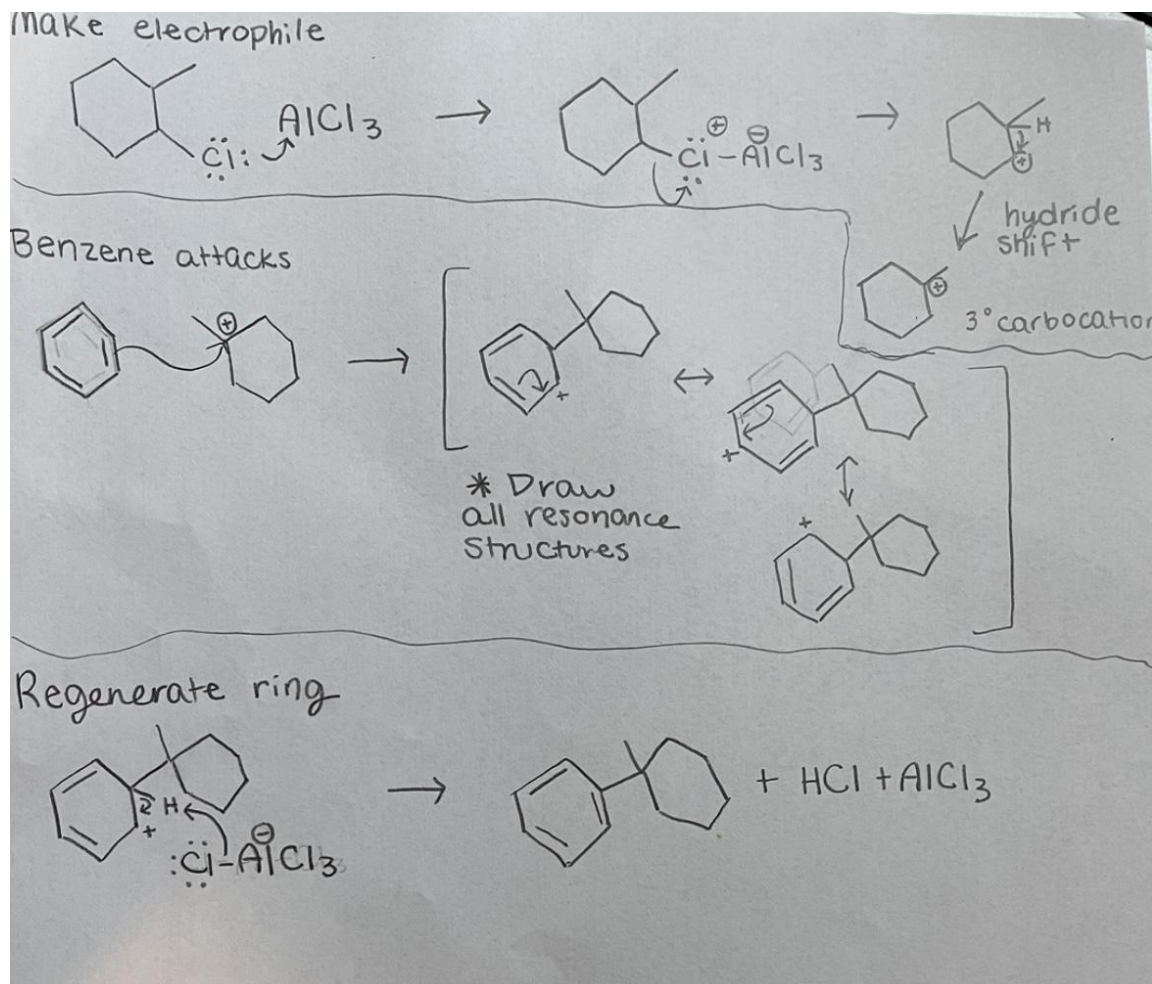 Make electrophile
:Cl: AlCl3 → ⊕ Cl – ⊖ AlCl3 → H ⊕
hydride
shift
⊕
3° carbocation
Benzene attacks
⊕ → + ↔ +
* Draw
all resonance
structures
+
Regenerate ring
H + → + HCl + AlCl3
⊖
:Cl – AlCl3